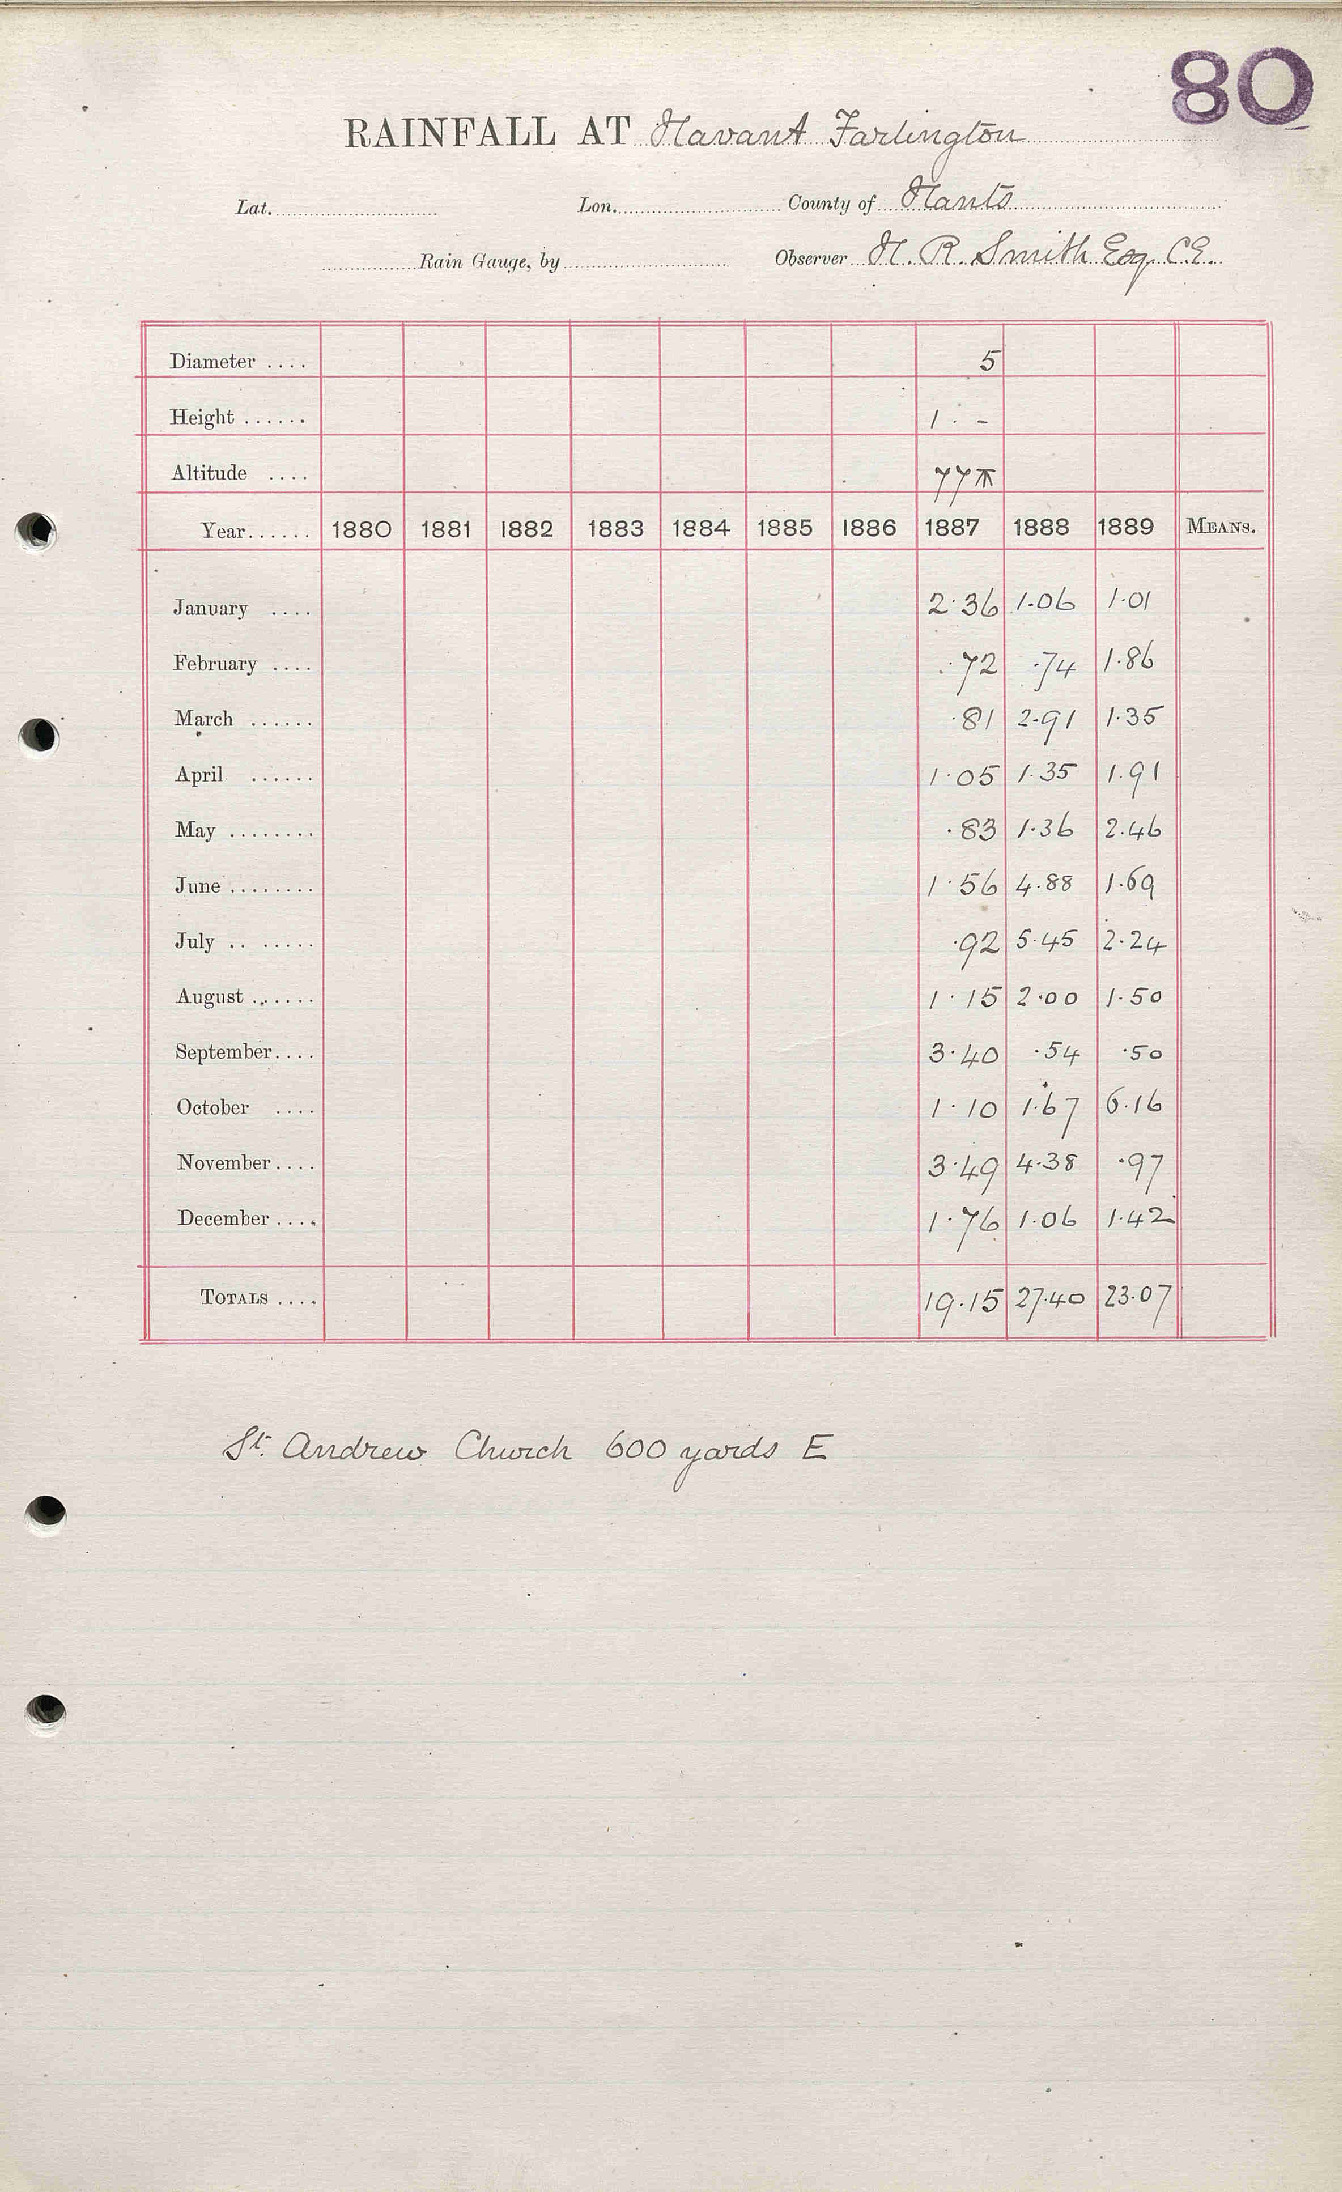 80
RAINFALL AT Havant Farlington
Lat. Lon. County of Hants
Rain Gauge, by Observer H. R. Smith Esq C.E.
Diameter .... 5
Height ...... 1 · -
Altitude .... 77
Year...... 1880 1881 1882 1883 1884 1885 1886 1887 1888 1889 MEANS.
January .... 2·36 1·06 1·01
February .... ·72 ·74 1·86
March ...... ·81 2·91 1·35
April ...... 1·05 1·35 1·91
May ........ ·83 1·36 2·46
June ........ 1·56 4·88 1·69
July .. ...... ·92 5·45 2·24
August ....... 1·15 2·00 1·50
September.... 3·40 ·54 ·50
October .... 1·10 1·67 6·16
November.... 3·49 4·38 ·97
December .... 1·76 1·06 1·42
TOTALS .... 19·15 27·40 23·07
St. Andrew Church 600 yards E